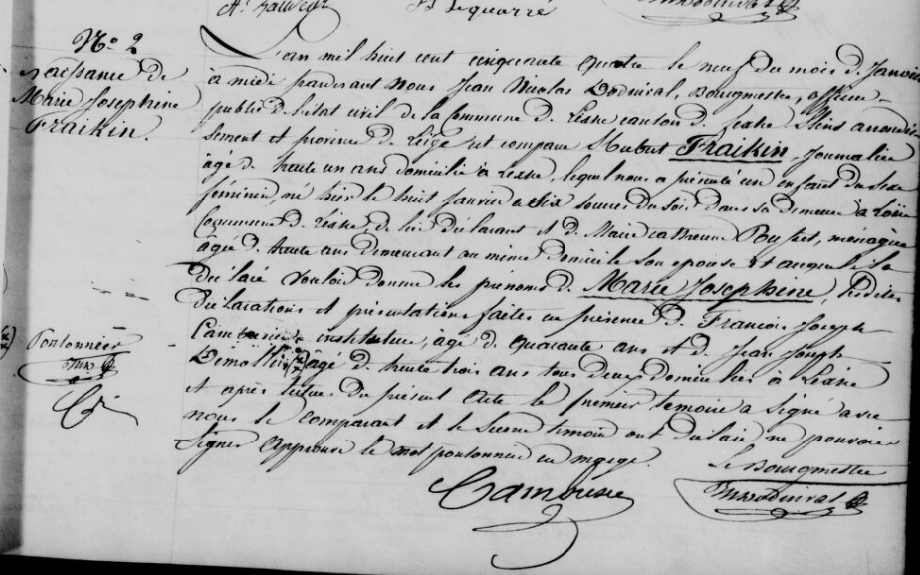 N° 2
Naissance de
Marie Josephine
Fraikin.
L'an mil huit cent cinquante quatre le neuf du mois d. Janvier
à midi pardevant nous Jean Nicolas Dodinval, Bourgmestre, officier
public d. l'état civil de la commune d. Lixhe canton d. Slins arrondis-
sement et province de Liège est comparu Hubert Fraikin, Journalier
âgé d. trente un ans domicilié à Lixhe, lequel nous a présenté un enfant du sexe
féminin, né hier le huit janvier à six heures du soir dans sa demeure à
Commune d. Lixhe, de lui déclarant et d. Marie Catherine ménagère
âgée d. trente ans demeurant au même domicile son épouse et auquel il a
déclaré vouloir donner les prénoms d. Marie Josephine, lesdites
déclarations et présentations faites en présence d. François Joseph
Camburie instituteur, âgé d. quarante ans et d. Jean Joseph
âgé d. trente trois ans tous deux domiciliés à Lixhe
et après lecture du présent acte le premier témoin a signé avec
nous le comparant et le second témoin ont déclaré ne pouvoir
signer approuvé le mot pontonnier en marge.
Pontonnier
Le Bourgmestre